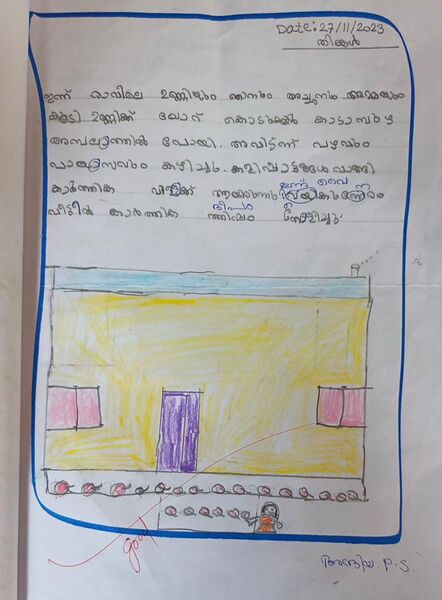 Date:27/11/2023
തിങ്കൾ
ഇന്ന് രാവിലെ ഉണ്ണിയും ഞാനും അച്ഛനും അമ്മയും
കൂടി ഉണ്ണിക്ക് ചോറ് കൊടുക്കാൻ കാടാമ്പുഴ
അമ്പലത്തിൽ പോയി. അവിടന്ന് പഴവും
പായസവും കഴിച്ചു. കളിപ്പാട്ടങ്ങൾ വാങ്ങി
ഇന്ന് വൈ ന്നേ
കാർത്തിക വിളക്ക് ആയിരുന്നു
ദീപം
വീട്ടിൽ കാർത്തിക
good
P.S.